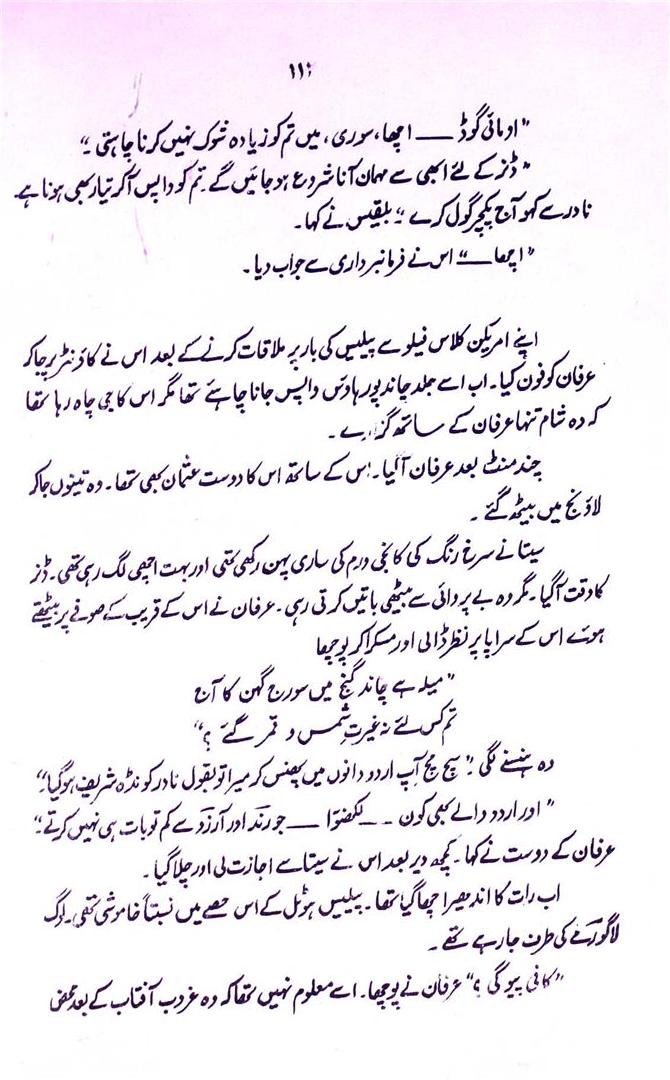 ۱۱۰
”او مائی گوڈ —— اچھا، سوری، میں تم کو زیادہ شوک نہیں کرنا چاہتی۔“
”ڈنر کے لئے ابھی سے مہمان آنا شروع ہو جائیں گے۔ تم کو واپس آ کر تیار بھی ہونا ہے۔
نادر سے کہو آج پکچر گول کرے۔“ بلقیس نے کہا۔
”اچھا ——“ اس نے فرمانبرداری سے جواب دیا۔
اپنے امریکن کلاس فیلو سے پیلیس کی بار پر ملاقات کرنے کے بعد اس نے کاؤنٹر پر جا کر
عرفان کو فون کیا۔ اب اسے جلد چاند پور ہاؤس واپس جانا چاہئے تھا مگر اس کا جی چاہ رہا تھا
کہ وہ شام تنہا عرفان کے ساتھ گزارے۔
چند منٹ بعد عرفان آ گیا۔ اس کے ساتھ اس کا دوست عثمان بھی تھا۔ وہ تینوں جا کر
لاؤنج میں بیٹھ گئے۔
سیتا نے سرخ رنگ کی کانجی ورم کی ساری پہن رکھی تھی اور بہت اچھی لگ رہی تھی۔ ڈنر
کا وقت آ گیا۔ مگر وہ بے پروائی سے بیٹھی باتیں کرتی رہی۔ عرفان نے اس کے قریب کے صوفے پر بیٹھتے
ہوئے اس کے سراپا پر نظر ڈالی اور مسکرا کر پوچھا
”میلہ ہے چاند گنج میں سورج گہن کا آج
تم کس لئے نہ غیرتِ شمس و قمر گئے؟“
وہ ہنسنے لگی۔ ”سچ مچ آپ اردو دانوں میں پھنس کر میرا تو بقول نادر کونڈہ شریف ہو گیا۔“
”اور اردو والے بھی کون —— لکھنؤا —— جو رند اور آرزو سے کم تو بات ہی نہیں کرتے۔“
عرفان کے دوست نے کہا۔ کچھ دیر بعد اس نے سیتا سے اجازت لی اور چلا گیا۔
اب رات کا اندھیرا چھا گیا تھا۔ پیلیس ہوٹل کے اس حصے میں نسبتاً خاموشی تھی۔ لوگ
لاگورمے کی طرف جا رہے تھے۔
”کافی پیو گی؟“ عرفان نے پوچھا۔ اسے معلوم نہیں تھا کہ وہ غروب آفتاب کے بعد محض